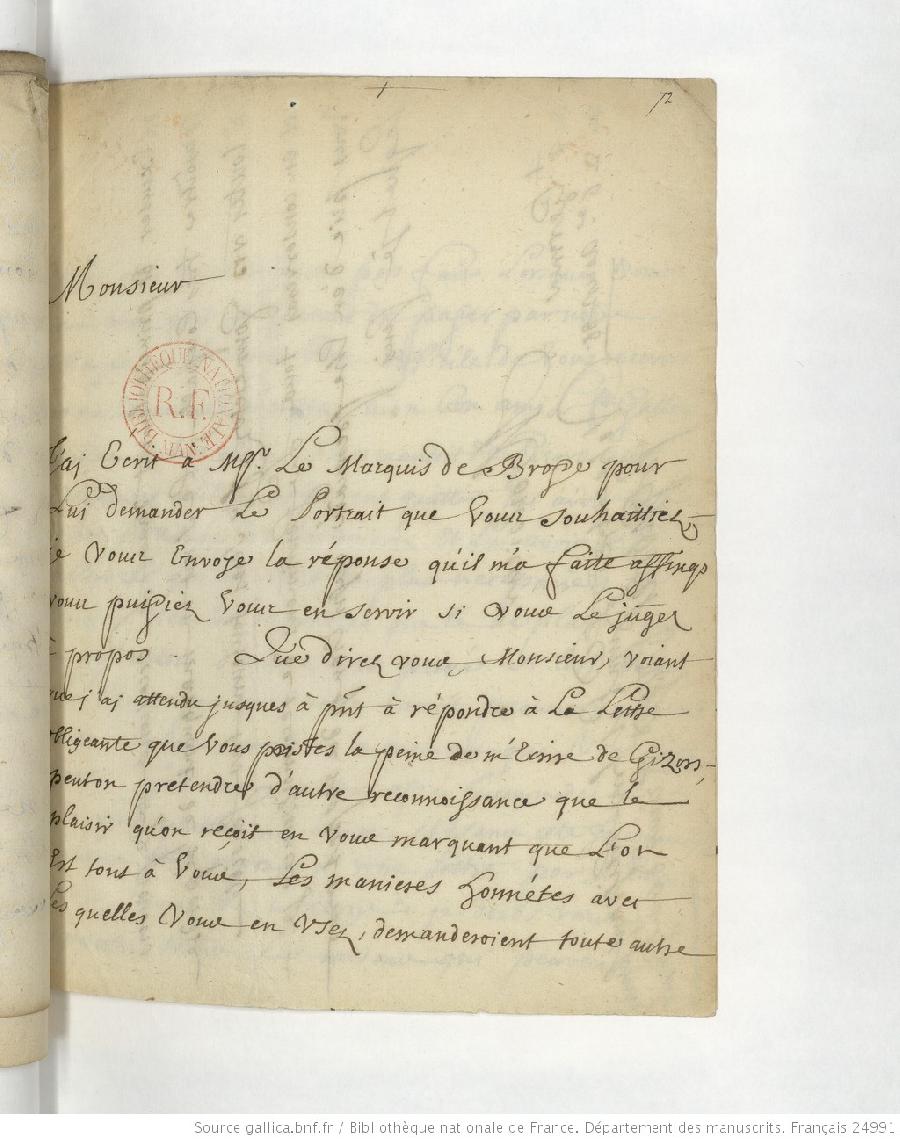 72
Monsieur
BIBLIOTHEQUE NATIONALE MAN.
R.F.
J'ai Ecrit a Mgr. Le Marquis de Brosse pour
Lui demander Le Portrait que Vous souhaittiez
je Vous Envoye la réponse qu'il m'a faite affin que
vous puissiez Vous en servir si vous Le jugez
à propos Que direz vous, Monsieur, voiant
que j'ai attendu jusques à pnt à répondre à La Lettre
obligeante que Vous pristes la peine de m'Ecrire de
peuton pretendre d'autre reconnoissance que le
plaisir qu'on reçoit en Vous marquant que L'on
Est tout à Vous, Les manieres honnétes avec
Les quelles Vous en Vsez, demanderoient toute autre
Source gallica.bnf.fr / Bibliothèque nationale de France. Département des manuscrits. Français 24991